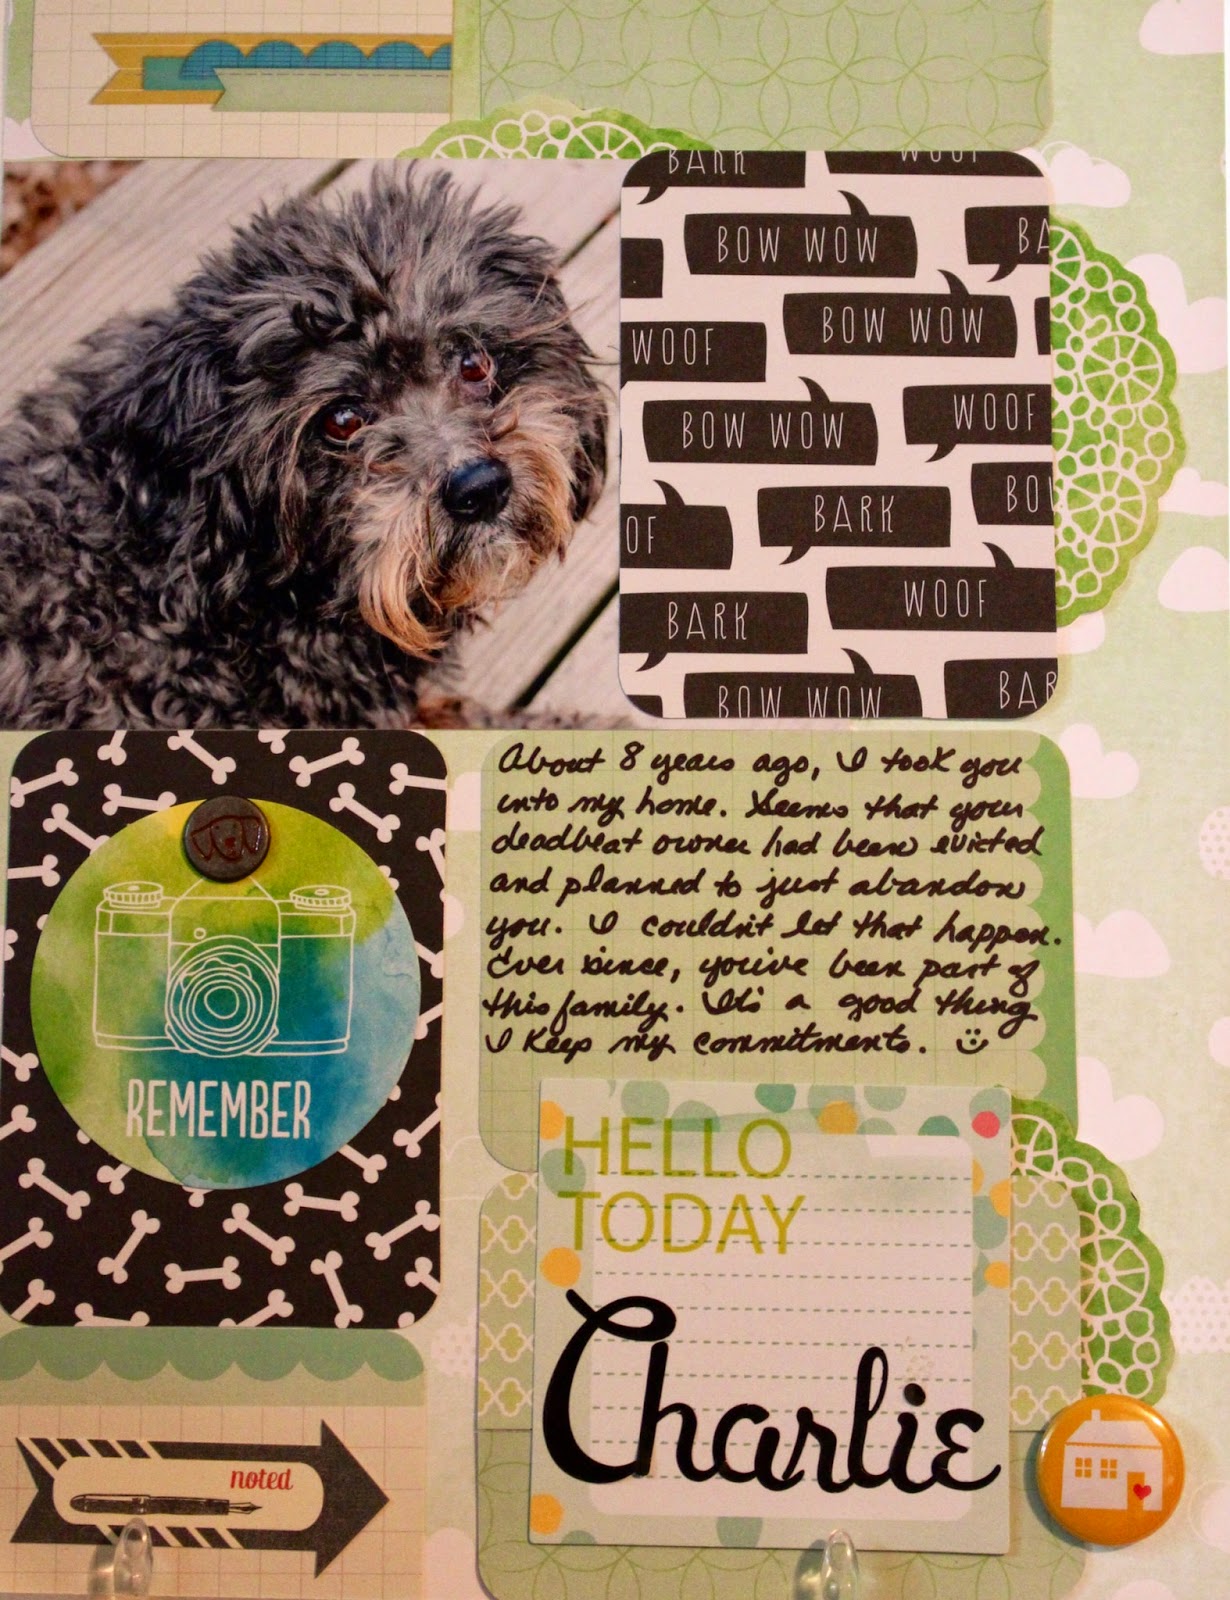 BARK WOOF
BOW WOW BA
WOOF BOW WOW
BOW WOW WOOF
OF BARK BO
BARK WOOF
BOW WOW BAR
REMEMBER
About 8 years ago, I took you
into my home. Seems that your
deadbeat owner had been evicted
and planned to just abandon
you. I couldn't let that happen.
Ever since, you've been part of
this family. It's a good thing
I keep my commitments. :)
HELLO
TODAY
Charlie
noted